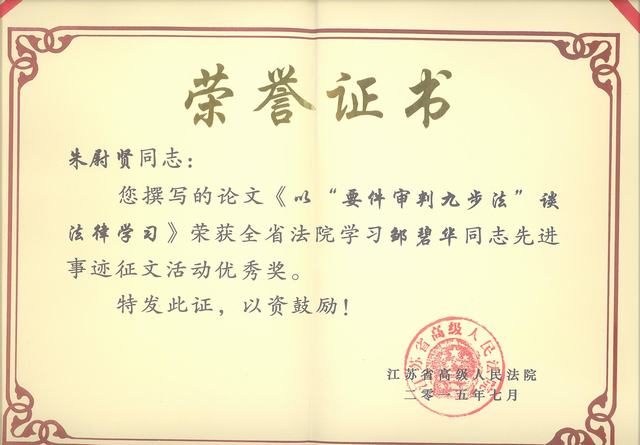 荣誉证书
朱尉贤同志：
您撰写的论文《以“要件审判九步法”谈
法律学习》荣获全省法院学习邹碧华同志先进
事迹征文活动优秀奖。
特发此证，以资鼓励！
江苏省高级人民法院
江苏省高级人民法院
二〇一五年七月